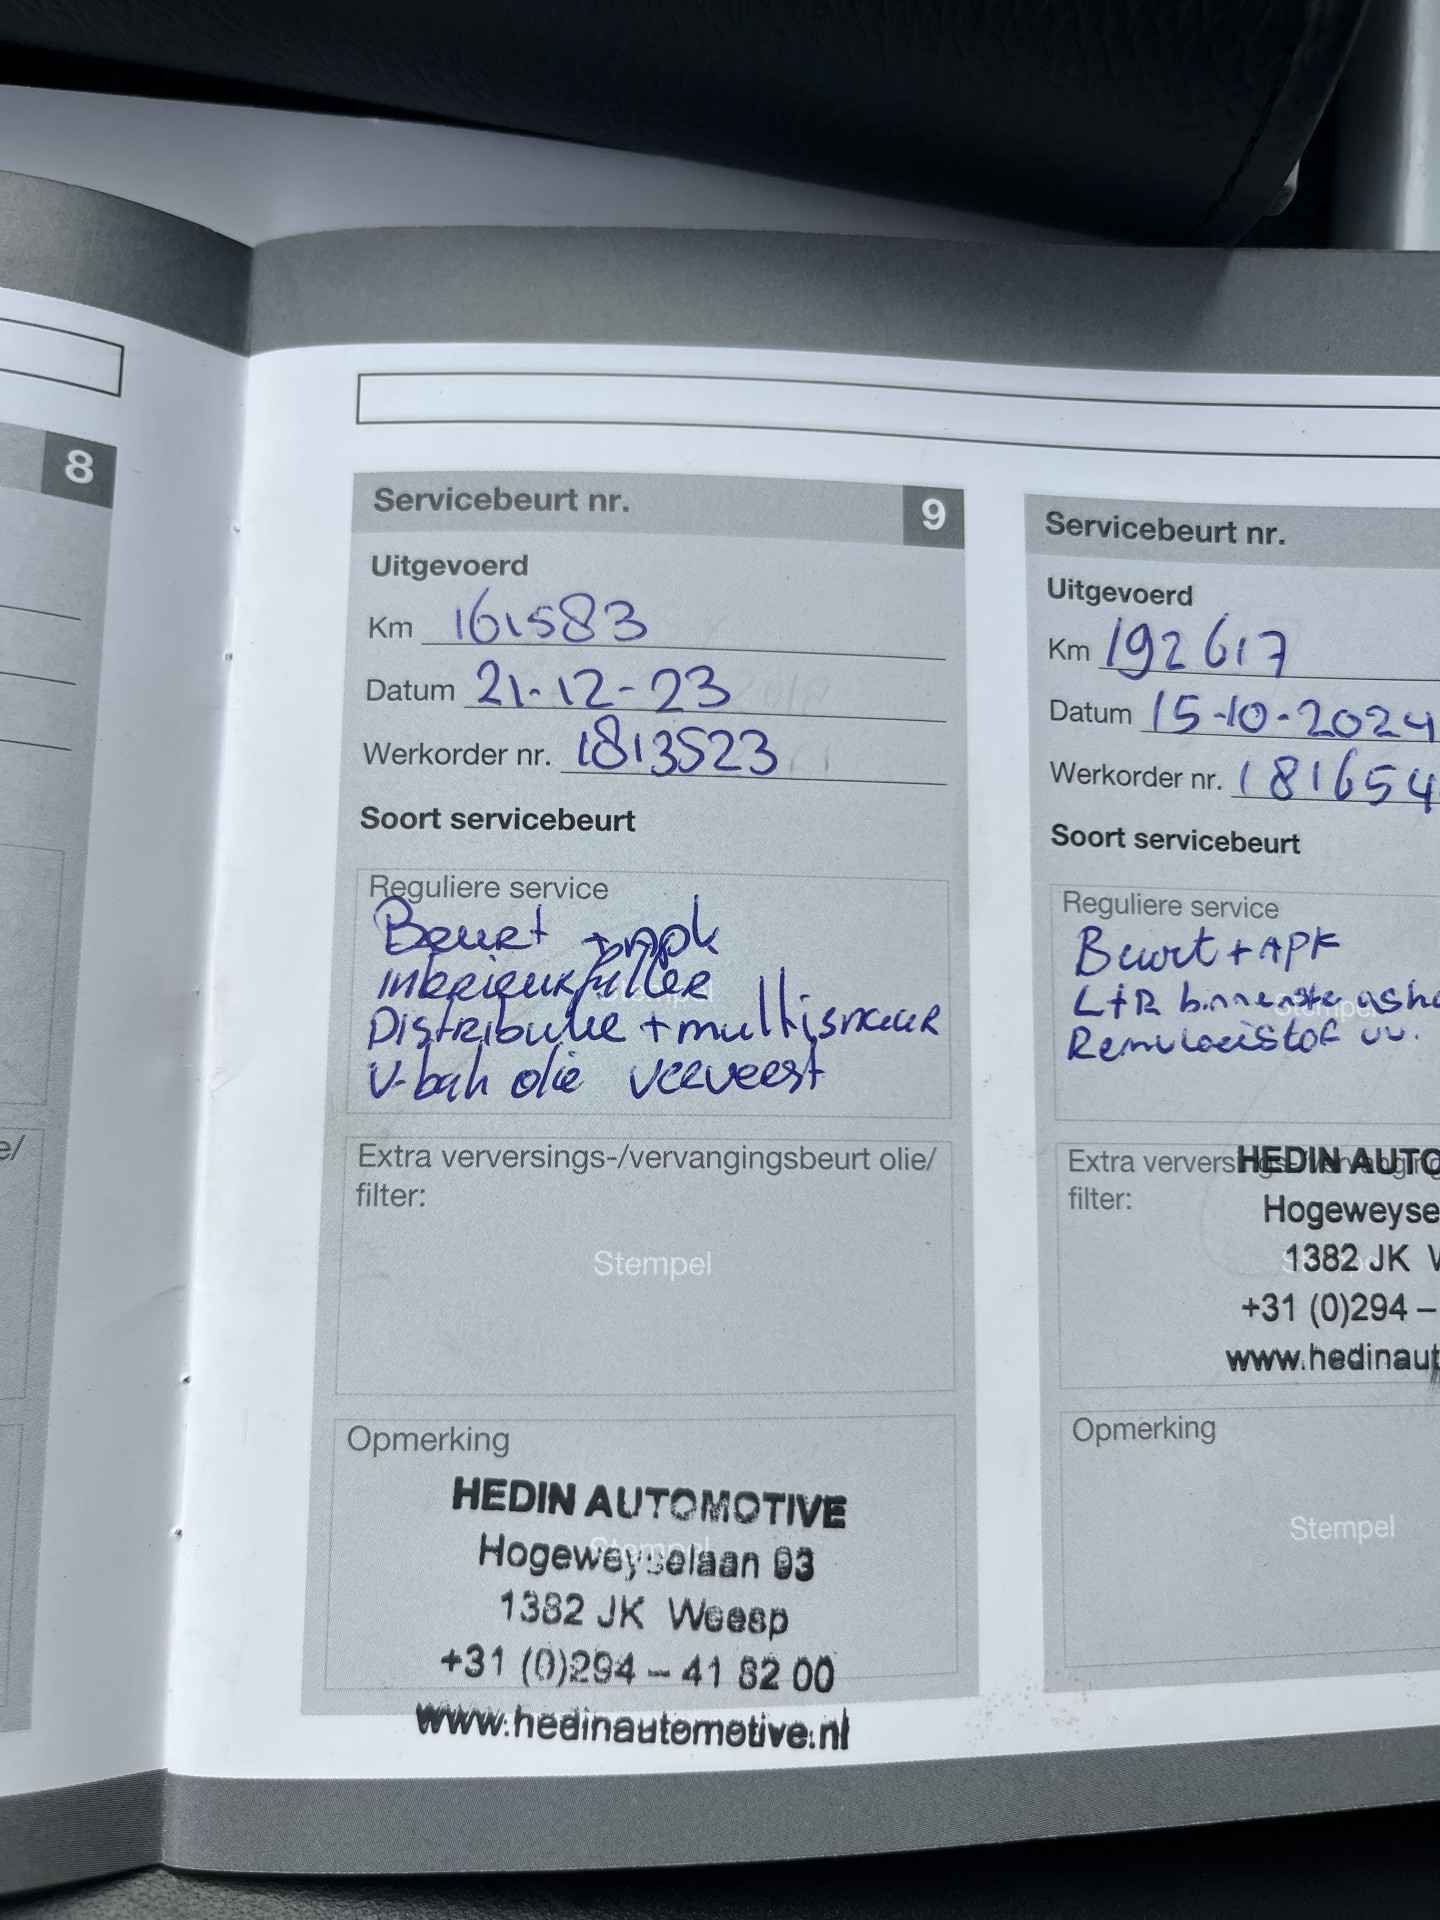 8
e/
Servicebeurt nr. 9
Uitgevoerd
Km 161583
Datum 21-12-23
Werkorder nr. 1813523
Soort servicebeurt
Reguliere service
Beurt + apk
Interieurfilter
Distributie + multisnaar
V-bak olie ververst
Stempel
Extra verversings-/vervangingsbeurt olie/
filter:
Stempel
Opmerking
Stempel
HEDIN AUTOMOTIVE
Hogeweyselaan 93
1382 JK Weesp
+31 (0)294 – 41 82 00
www.hedinautomotive.nl
Servicebeurt nr.
Uitgevoerd
Km 192617
Datum 15-10-2024
Werkorder nr. 181654
Soort servicebeurt
Reguliere service
Beurt + APK
L+R binnenste asho
Remvloeistof vv.
Stempel
Extra verversings-/vervanging
filter:
HEDIN AUTO
Hogeweyse
1382 JK W
+31 (0)294 –
www.hedinaut
Opmerking
Stempel